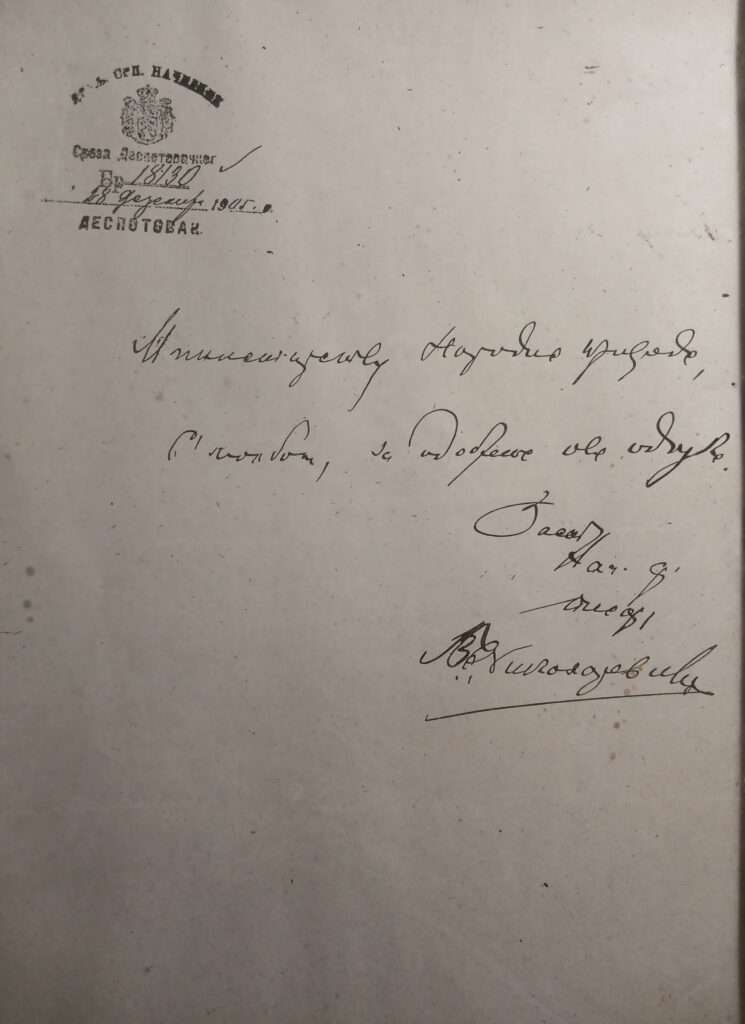 СРП. НАЧЕЛНИК
Среза Деспотовачког
Бр 18130
28 децембр 1905. г.
ДЕСПОТОВАЦ.
Министарству Народне привреде,
С молбом, за одобрење ове одлуке.
Заст.
Нач. ср.
писар,